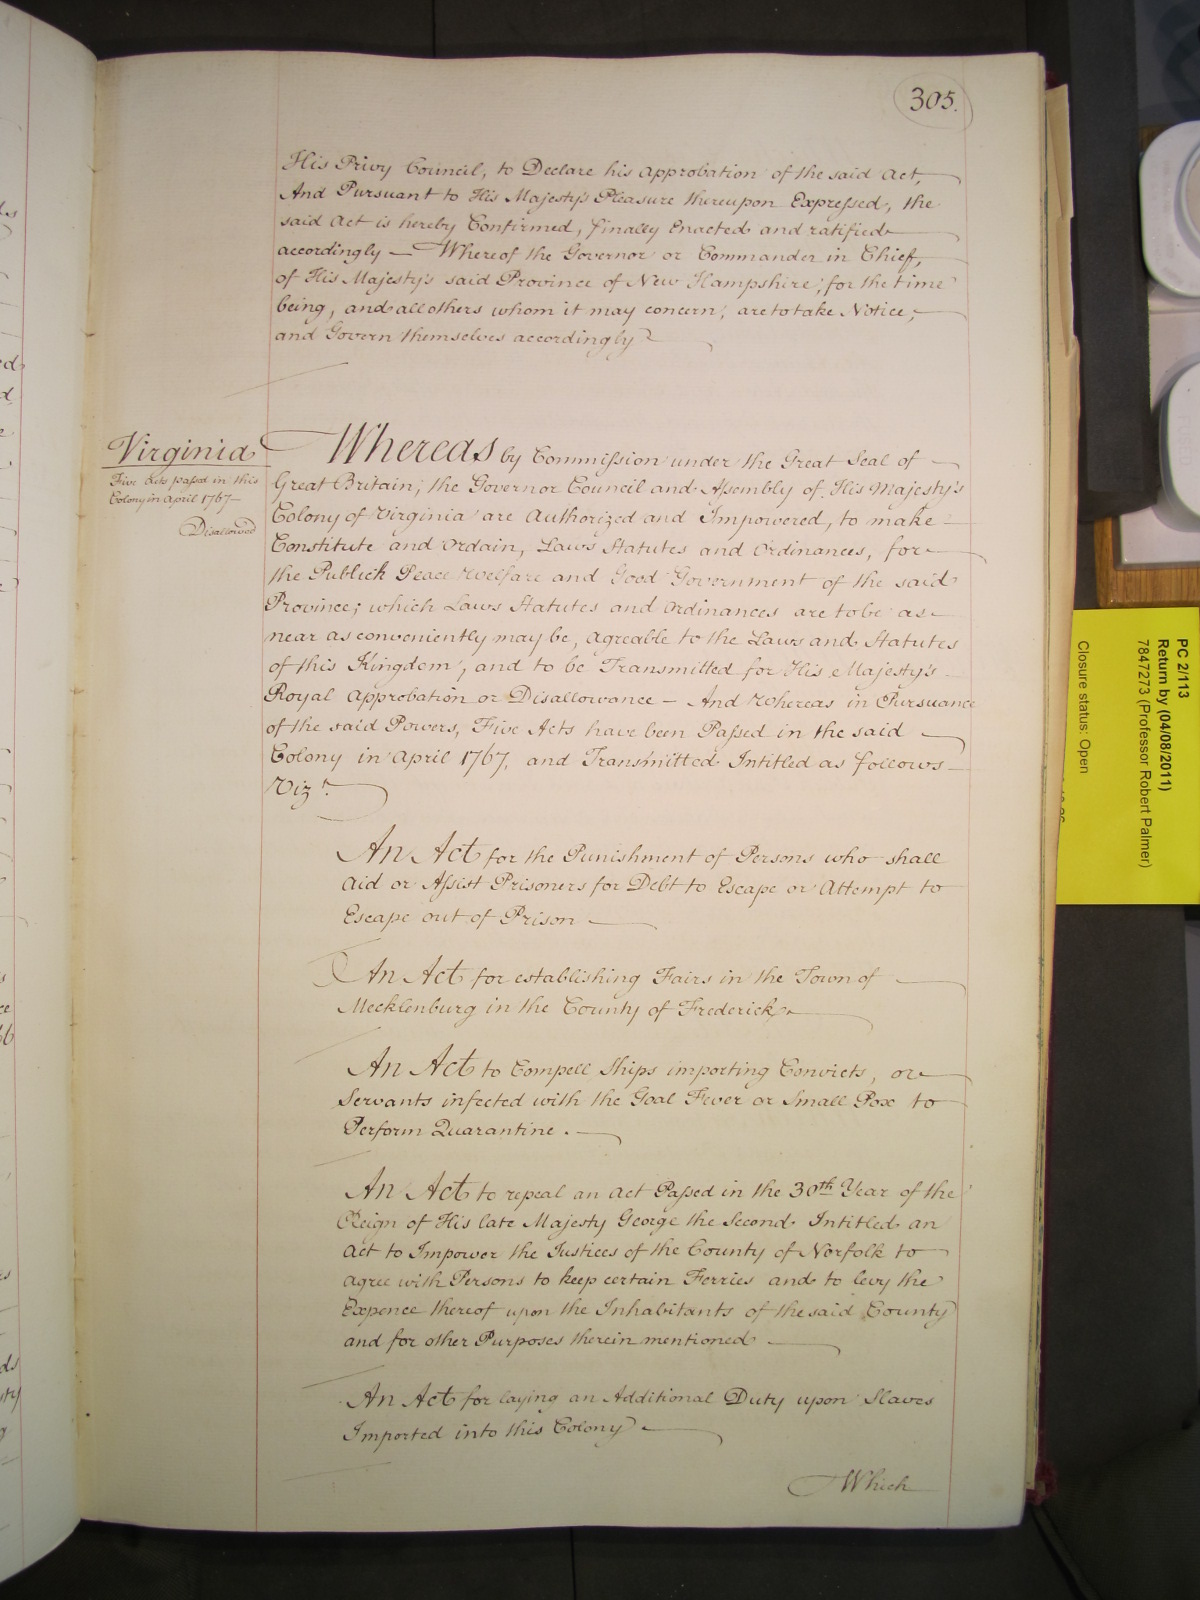 305.
His Privy Council, to Declare his approbation of the said Act,
And Pursuant to His Majesty's Pleasure thereupon Expressed, the
said Act is hereby Confirmed, finally Enacted and ratified
accordingly — Whereof the Governor or Commander in Chief,
of His Majesty's said Province of New Hampshire, for the time
being, and all others whom it may concern, are to take Notice,
and Govern themselves accordingly
Virginia
Five Acts passed in this
Colony in April 1767
Disallowed
Whereas by Commission under the Great Seal of
Great Britain, the Governor Council and Assembly of His Majesty's
Colony of Virginia are Authorized and Impowered, to make
Constitute and Ordain, Laws Statutes and Ordinances, for
the Publick Peace Welfare and Good Government of the said
Province; which Laws Statutes and Ordinances are to be as
near as conveniently may be, agreable to the Laws and Statutes
of this Kingdom, and to be Transmitted for His Majesty's
Royal Approbation or Disallowance — And Whereas in Pursuance
of the said Powers, Five Acts have been Passed in the said
Colony in April 1767, and Transmitted Intitled as follows
Vizt.
An Act for the Punishment of Persons who shall
Aid or Assist Prisoners for Debt to Escape or Attempt to
Escape out of Prison
An Act for establishing Fairs in the Town of
Mecklenburg in the County of Frederick
An Act to Compell Ships importing Convicts, or
Servants infected with the Goal Fever or Small Pox to
Perform Quarantine.
An Act to repeal an Act Passed in the 30th Year of the
Reign of His late Majesty George the Second Intitled an
Act to Impower the Justices of the County of Norfolk to
agree with Persons to keep certain Ferries and to levy the
Expence thereof upon the Inhabitants of the said County
and for other Purposes therein mentioned
An Act for laying an Additional Duty upon Slaves
Imported into this Colony
Which
PC 2/113
Return by (04/08/2011)
7847273 (Professor Robert Palmer)
Closure status: Open